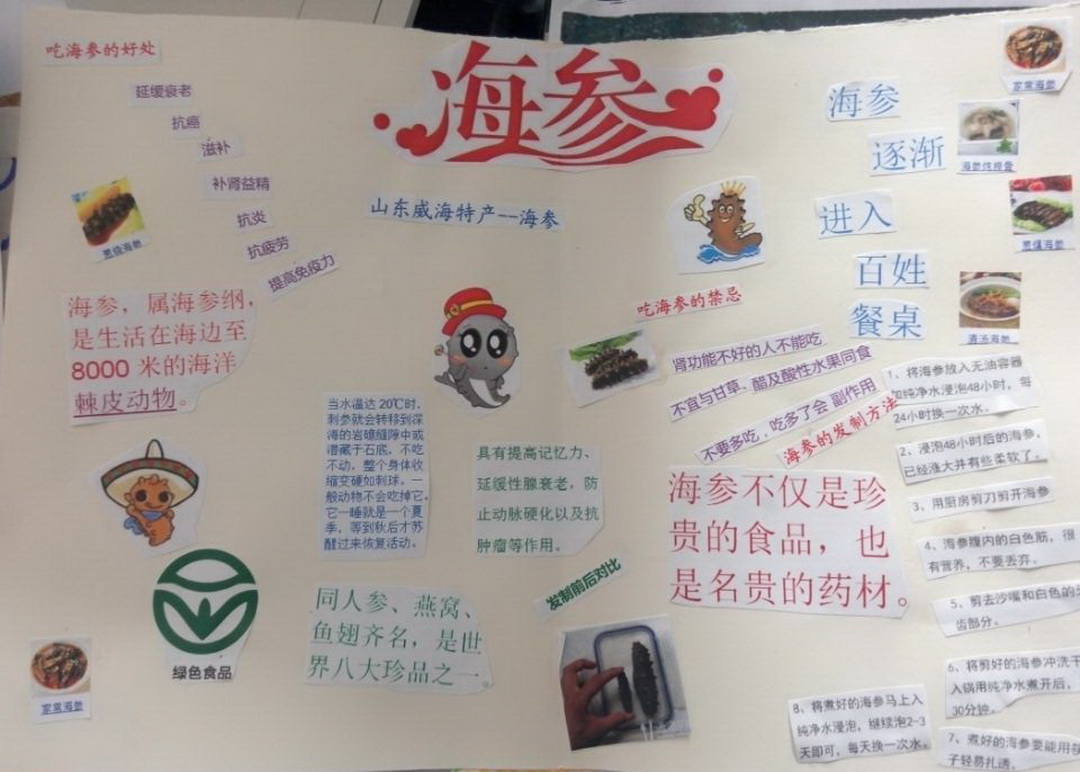 吃海参的好处
延缓衰老
抗癌
滋补
补肾益精
抗炎
抗疲劳
提高免疫力
葱烧海参
海参
山东威海特产--海参
海参
逐渐
进入
百姓
餐桌
家常海参
海参炖排骨
葱爆海参
清汤海参
海参，属海参纲，
是生活在海边至
8000 米的海洋
棘皮动物。
当水温达 20℃时，
刺参就会转移到深
海的岩礁缝隙中或
潜藏于石底，不吃
不动，整个身体收
缩变硬如刺球，一
般动物不会吃掉它。
它一睡就是一个夏
季，等到秋后才苏
醒过来恢复活动。
具有提高记忆力、
延缓性腺衰老，防
止动脉硬化以及抗
肿瘤等作用。
吃海参的禁忌
肾功能不好的人不能吃
不宜与甘草、醋及酸性水果同食
不要多吃，吃多了会 副作用
海参的发制方法
海参不仅是珍
贵的食品，也
是名贵的药材。
绿色食品
同人参、燕窝、
鱼翅齐名，是世
界八大珍品之一。
发制前后对比
家常海参
1、将海参放入无油容器
加纯净水浸泡48小时，每
24小时换一次水。
2、浸泡48小时后的海参，
已经涨大并有些柔软了。
3、用厨房剪刀剪开海参
4、海参腹内的白色筋，很
有营养，不要丢弃。
5、剪去沙嘴和白色的
齿部分。
6、将剪好的海参冲洗干
入锅用纯净水煮开后，
30分钟。
7、煮好的海参要能用筷
子轻易扎透。
8、将煮好的海参马上入
纯净水浸泡，继续泡2-3
天即可，每天换一次水。